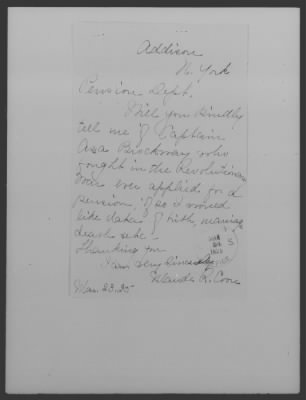 Addison
N. York
Pension Dept.
Will you kindly
tell me if Captain
Asa Brockway who
fought in the Revolutionary
War ever applied for a
pension, if so I would
like date of birth, marriage
death etc -
Thanking you
I am very sincerely
R.
Mar. 23-25